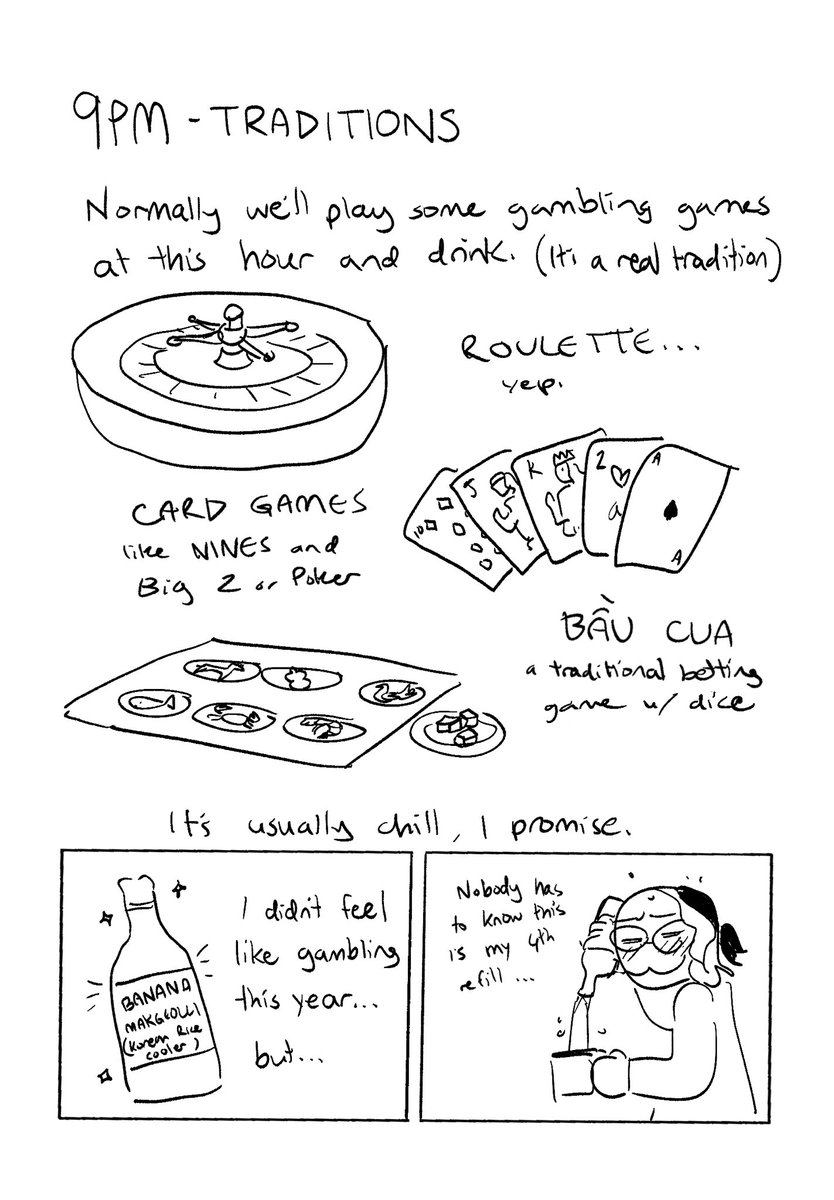 9PM - TRADITIONS
Normally we'll play some gambling games
at this hour and drink. (It's a real tradition)
ROULETTE...
yep.
CARD GAMES
like NINES and
Big 2 or Poker
10
J
K
2
a
A
A
BẦU CUA
a traditional betting
game w/ dice
It's usually chill, I promise.
BANANA
MAKGEOLLI
(Korean Rice
cooler)
I didn't feel
like gambling
this year...
but...
Nobody has
to know this
is my 4th
refill...